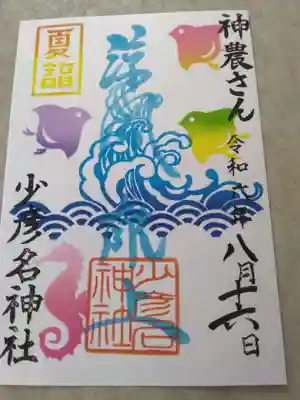 神農さん
令和六年八月十六日
夏詣
少彦名
神社
少彦名神社